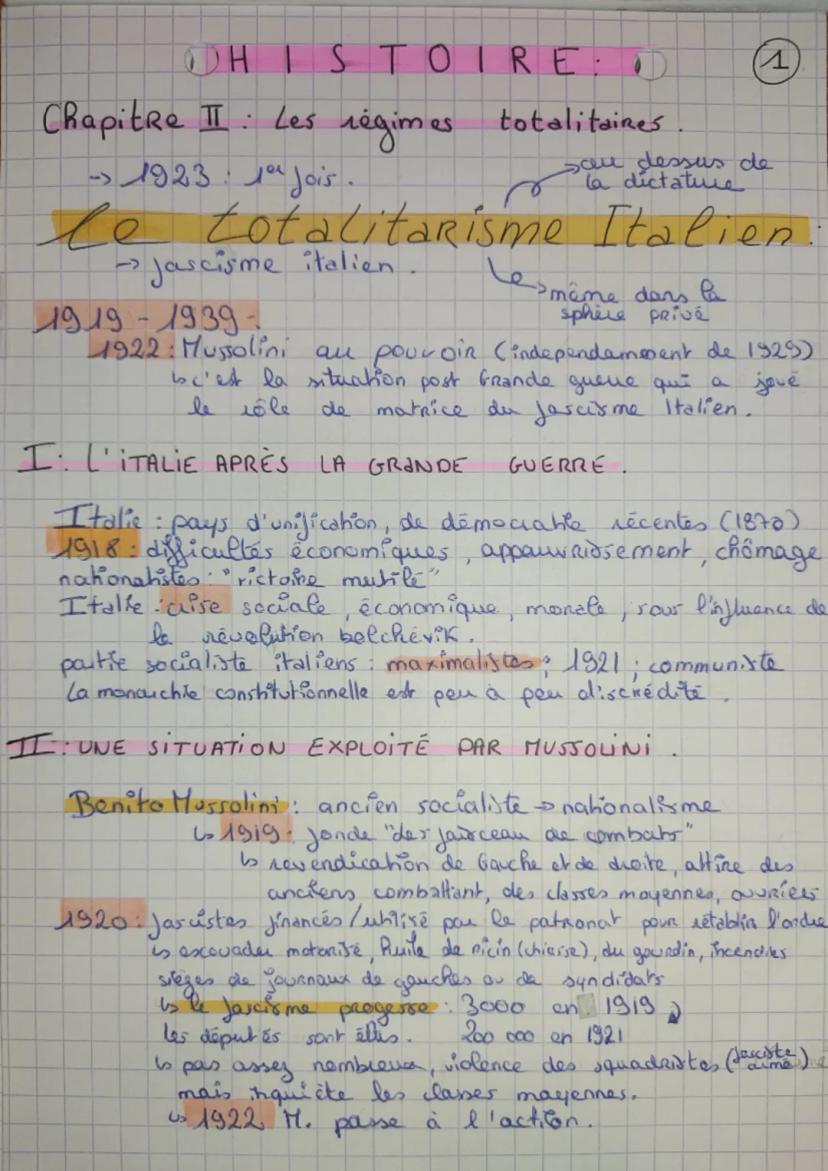 HISTOIRE:
1
Chapitre II : Les régimes totalitaires.
→ 1923 : 1er fois.
au dessus de
la dictature
Le totalitarisme Italien:
→ fascisme italien.
même dans la
sphère privé
1919-1939.
1922 : Mussolini au pouvoir (independamment de 1929)
↳ c'est la situation post Grande guerre qui a joué
le rôle de matrice du fascisme Italien.
I: L'ITALIE APRÈS LA GRANDE GUERRE.
Italie : pays d'unification, de démocratie récentes (1870)
1918 : difficultés économiques, appauvrissement, chômage
nationalistes : "victoire mutilé"
Italie : crise sociale, économique, morale, sous l'influence de
la révolution bolchévik.
partie socialiste italiens : maximalistes ; 1921 ; communiste
La monarchie constitutionnelle est peu à peu discrédité.
II: UNE SITUATION EXPLOITÉ PAR MUSSOLINI.
Benito Mussolini : ancien socialiste → nationalisme
↳ 1919 : fonde "des fairceau de combats"
↳ revendication de Gauche et de droite, attire des
anciens combattant, des classes moyennes, ouvriers
1920 : fascistes financés/utilisé par le patronat pour rétablir l'ordre
↳ escouades motorisé, huile de ricin (chiasse), du gourdin, incendies
sièges de journaux de gauches ou de syndidats
↳ le fascisme progesse : 3000 en 1919
les députés sont élus. 200 000 en 1921
↳ pas assez nombreux, violence des squadristes (fasciste armé)
mais inquiète les classes moyennes.
↳ 1922 M. passe à l'action.